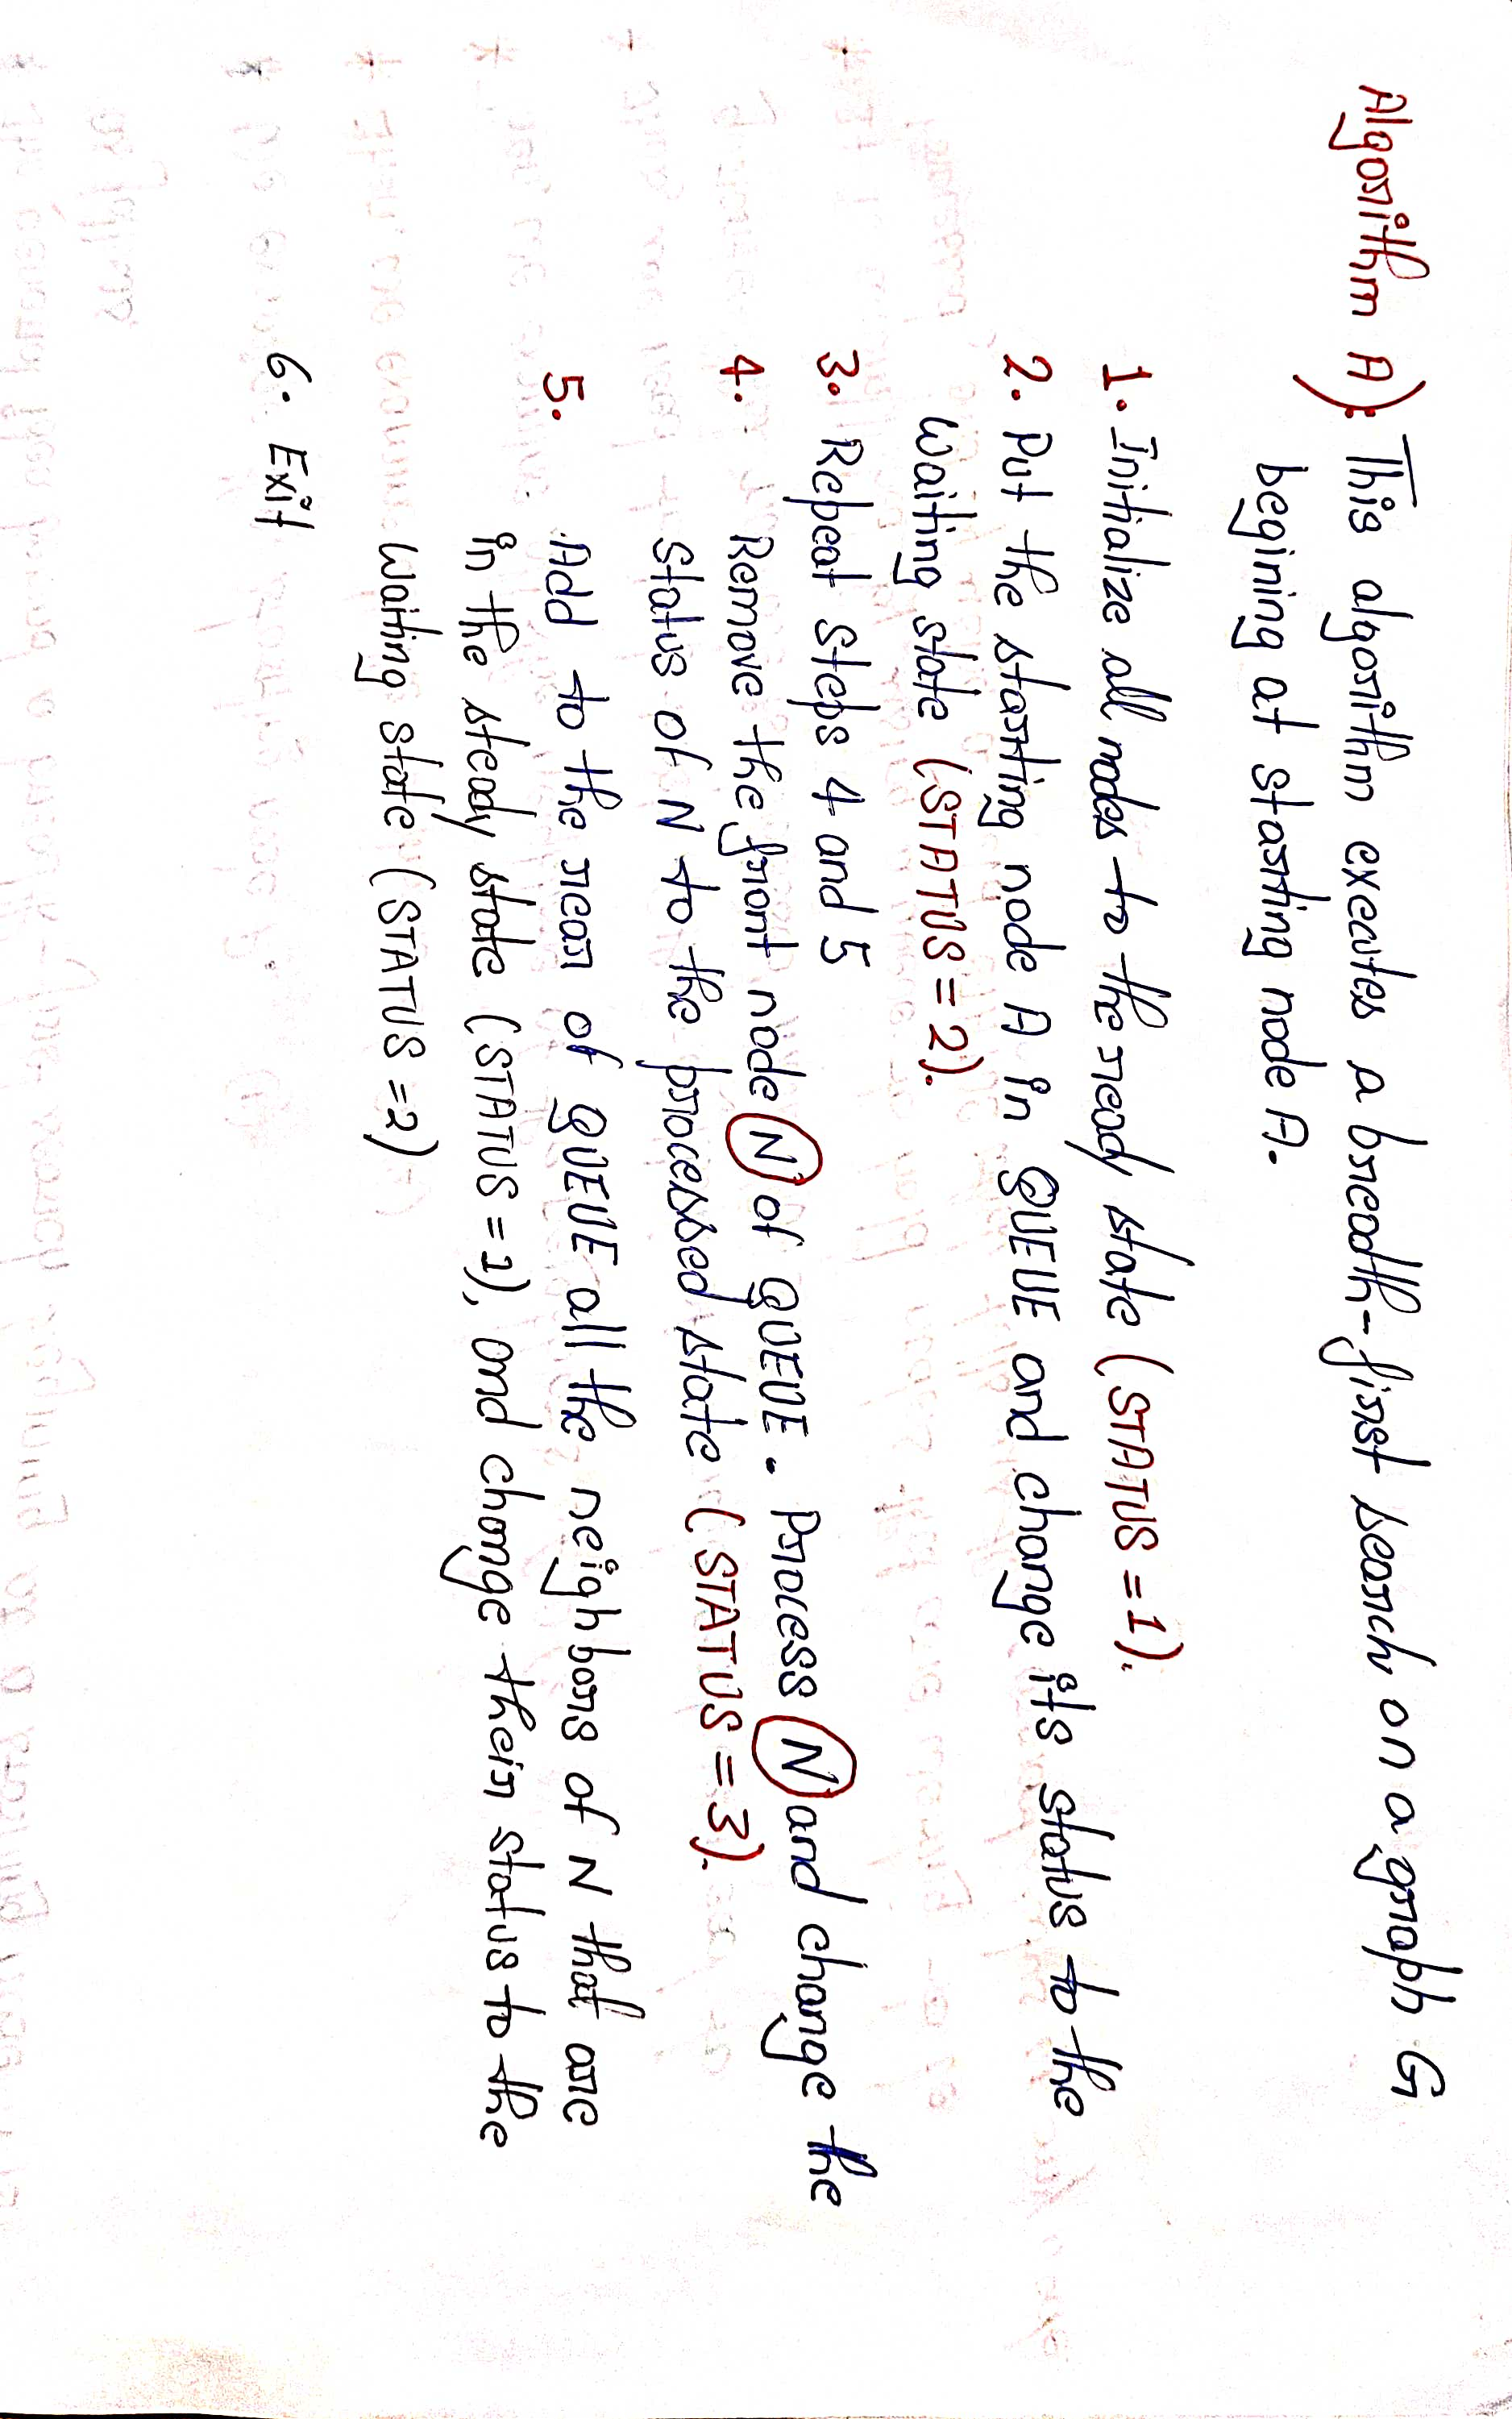 Algorithm A): This algorithm executes a breadth-first search on a graph G
begining at starting node A.
1. Initialize all nodes to the ready state (STATUS = 1).
2. Put the starting node A in QUEUE and change its status to the
waiting state (STATUS = 2).
3. Repeat steps 4 and 5
4. Remove the front node N of QUEUE. Process N and change the
status of N to the processed state (STATUS = 3).
5. Add to the rear of QUEUE all the neighbors of N that are
in the steady state (STATUS = 1), and change their status to the
waiting state (STATUS = 2)
6. Exit